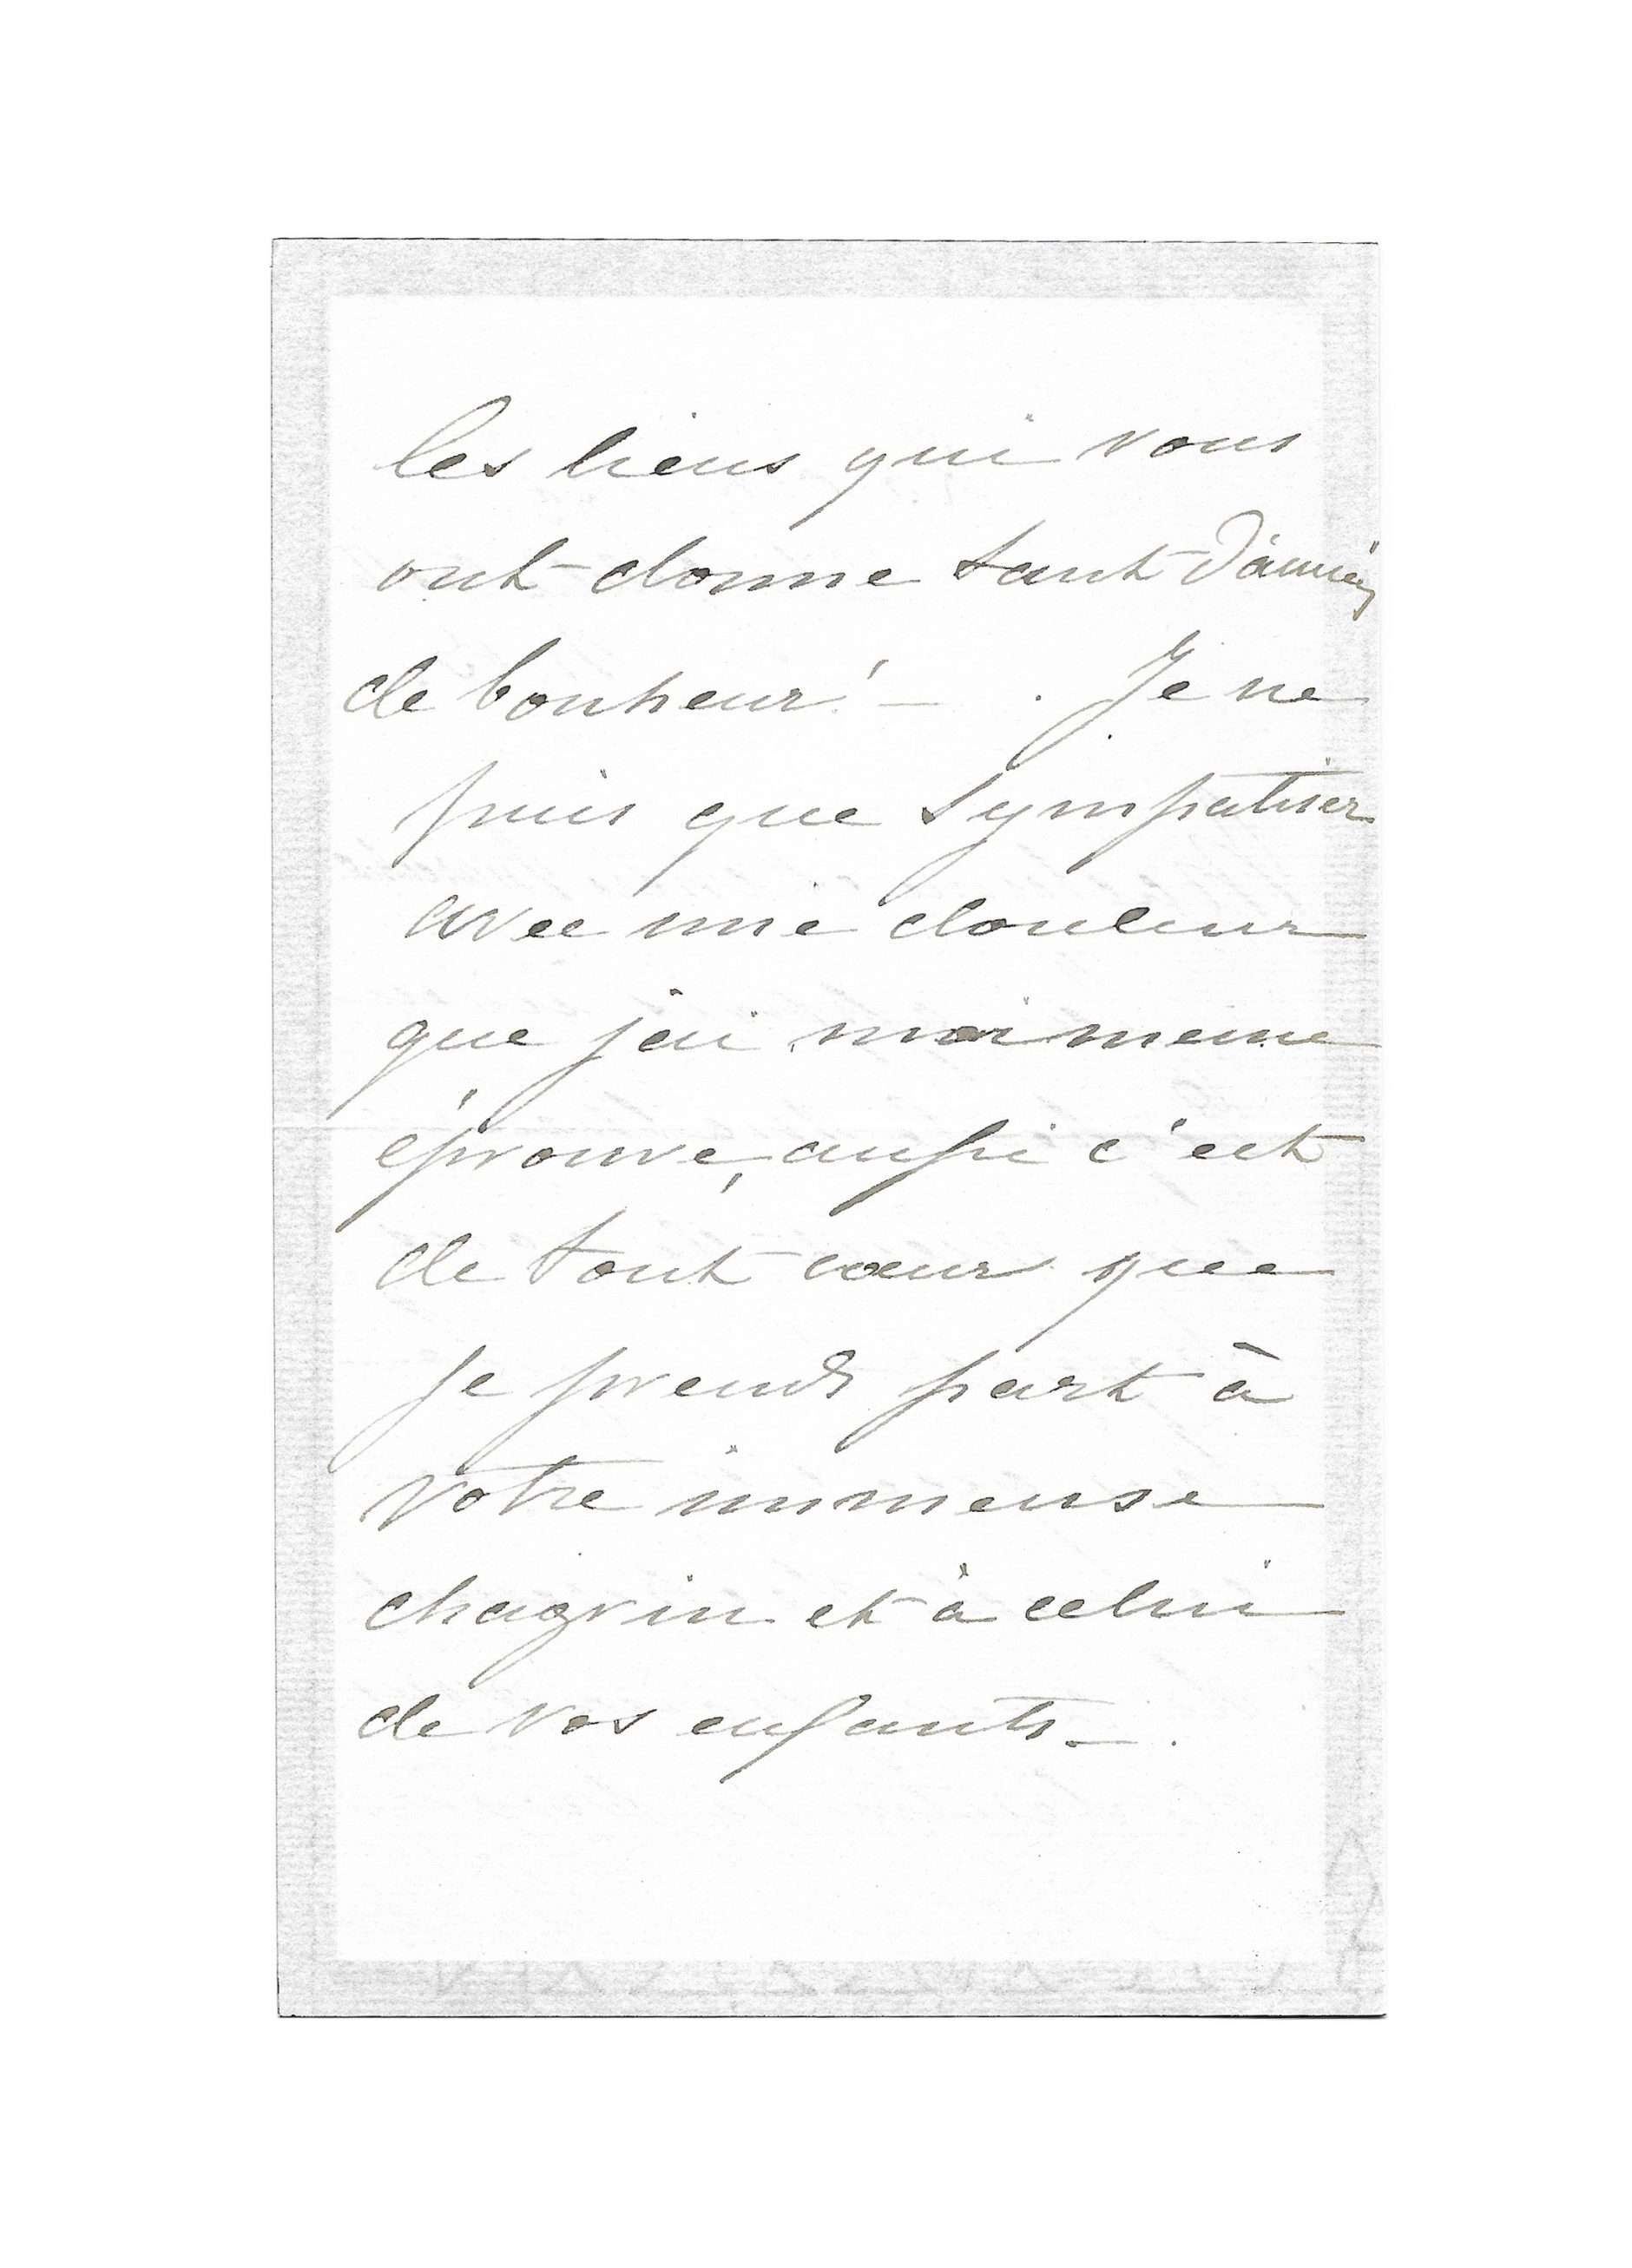 les liens qui vous
ont donne tant d'années
de bonheur! — . Je ne
puis que sympatiser
avec une douleur
que j'ai moi meme
éprouve, aussi c'est
de tout cœur que
je prends part à
votre immense
chagrin et à celui
de vos enfants — .